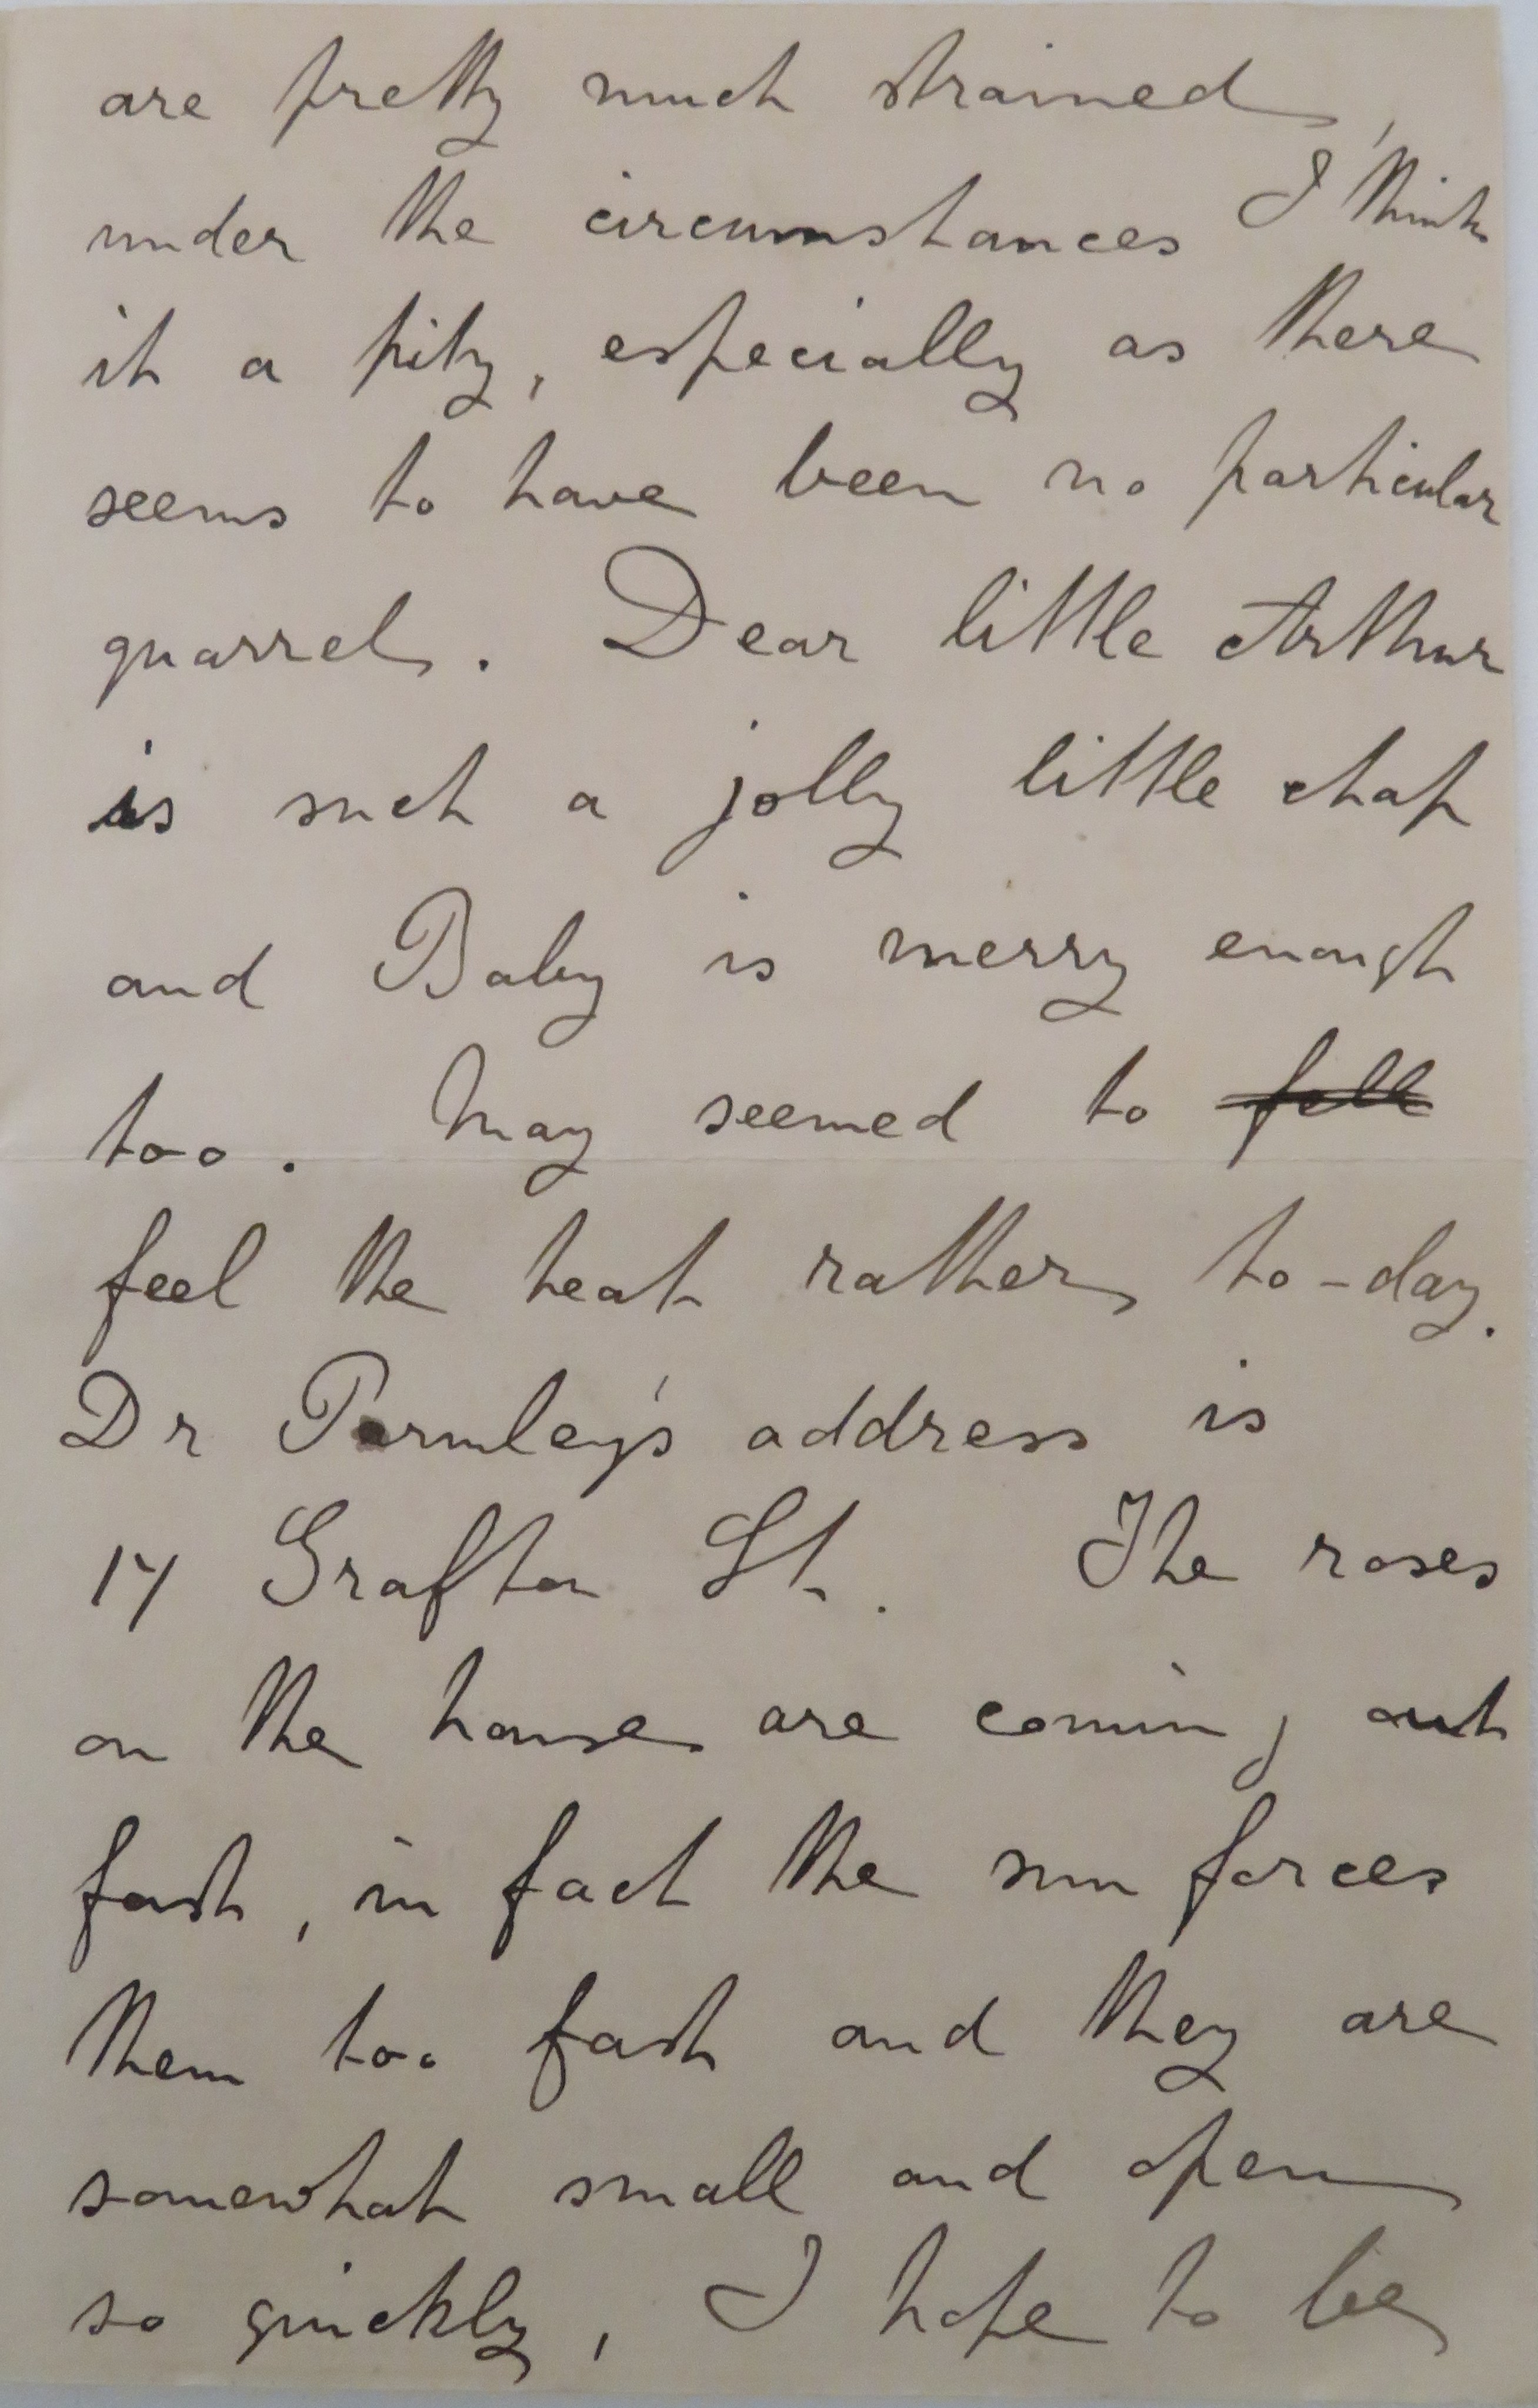 are pretty much strained,
under the circumstances I think
it a pity, especially as there
seems to have been no particular
quarrel. Dear little Arthur
is such a jolly little chap
and Baby is merry enough
too. May seemed to fell
feel the heat rather to-day.
Dr Parmley's address is
17 Grafton St. The roses
on the house are coming out
fast, in fact the sun forces
them too fast and they are
somewhat small and open
so quickly, I hope to be